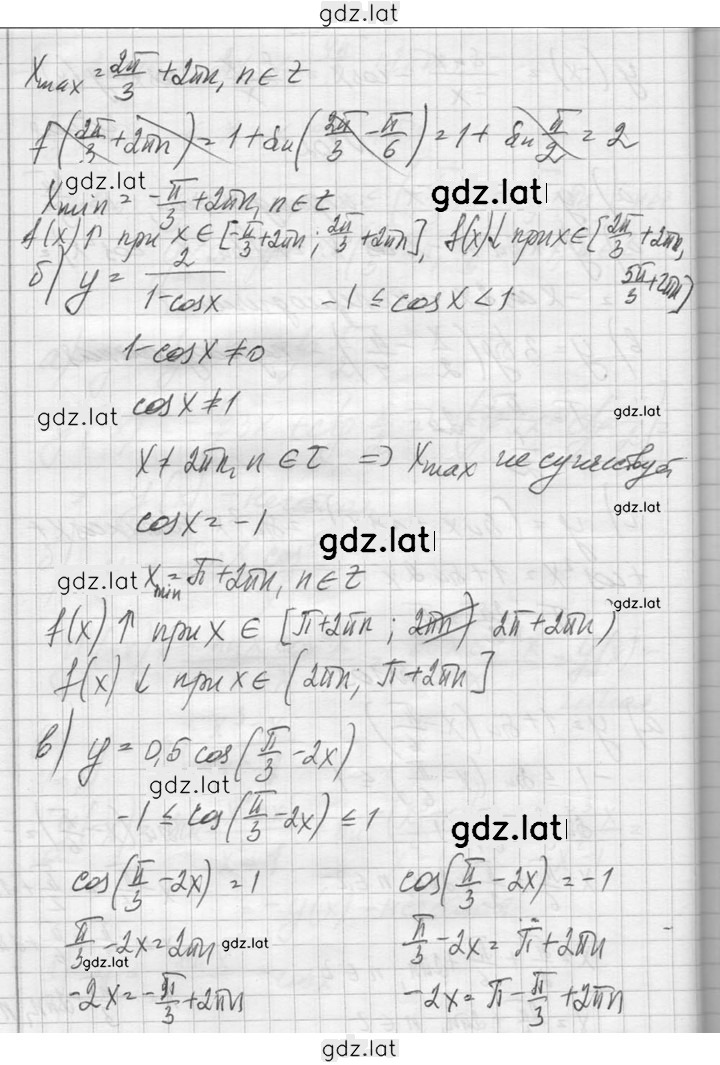 gdz.lat
Xmax = 2π/3 + 2πn, n ∈ Z
f(2π/3 + 2πn) = 1 + sin(2π/3 − π/6) = 1 + sin π/2 = 2
gdz.lat
Xmin = −π/3 + 2πn, n ∈ Z
gdz.lat
f(x)↑ при x ∈ [−π/3 + 2πn; 2π/3 + 2πn], f(x)↓ при x ∈ [2π/3 + 2πn,
5π/3 + 2πn)
б) y = 2/(1−cosx) −1 ≤ cosx < 1
1−cosx ≠ 0
cosx ≠ 1
gdz.lat
gdz.lat
x ≠ 2πn, n ∈ Z => Xmax не существует
gdz.lat
cosx = −1
gdz.lat
gdz.lat
Xmin = π + 2πn, n ∈ Z
gdz.lat
f(x)↑ при x ∈ [π+2πn; 2πn) 2π+2πn)
f(x)↓ при x ∈ (2πn; π+2πn]
в) y = 0,5 cos(π/3 − 2x)
gdz.lat
−1 ≤ cos(π/3 − 2x) ≤ 1
gdz.lat
cos(π/3 − 2x) = 1 cos(π/3 − 2x) = −1
π/3 − 2x = 2πn π/3 − 2x = π + 2πn
gdz.lat
gdz.lat
−2x = −π/3 + 2πn −2x = π − π/3 + 2πn
gdz.lat